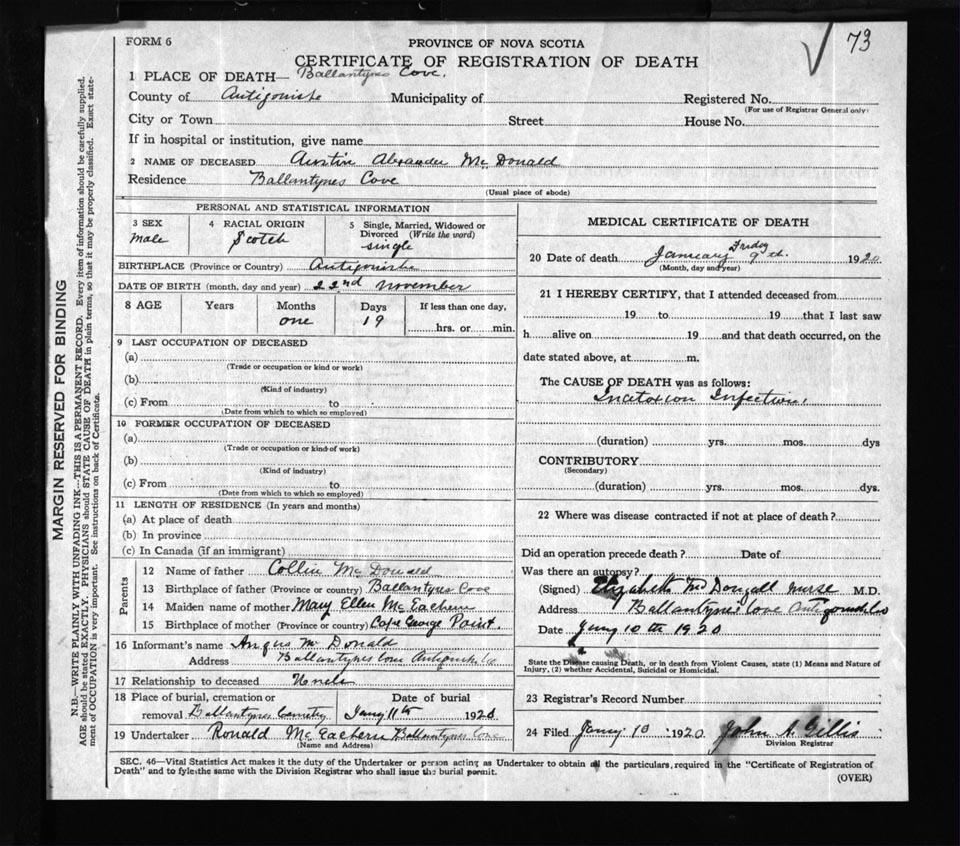 FORM 6
PROVINCE OF NOVA SCOTIA
73
CERTIFICATE OF REGISTRATION OF DEATH
1 PLACE OF DEATH— Ballantynes Cove.
County of Antigonish Municipality of Registered No.
(For use of Registrar General only)
City or Town Street House No.
If in hospital or institution, give name
2 NAME OF DECEASED Austin Alexander Mc Donald
Residence Ballantynes Cove
(Usual place of abode)
PERSONAL AND STATISTICAL INFORMATION
3 SEX
Male
4 RACIAL ORIGIN
Scotch
5 Single, Married, Widowed or Divorced (Write the word)
single
BIRTHPLACE (Province or Country) Antigonish
DATE OF BIRTH (month, day and year) 22nd November
8 AGE Years Months Days If less than one day,
one 19 hrs. or min.
9 LAST OCCUPATION OF DECEASED
(a)
(Trade or occupation or kind or work)
(b)
(Kind of industry)
(c) From to
(Date from which to which so employed)
10 FORMER OCCUPATION OF DECEASED
(a)
(Trade or occupation or kind of work)
(b)
(Kind of industry)
(c) From to
(Date from which to which so employed)
11 LENGTH OF RESIDENCE (In years and months)
(a) At place of death
(b) In province
(c) In Canada (if an immigrant)
Parents
12 Name of father Collin Mc Donald
13 Birthplace of father (Province or country) Ballantynes Cove
14 Maiden name of mother Mary Ellen Mc Eachern
15 Birthplace of mother (Province or country) Cape George Point.
16 Informant's name Angus Mc Donald
Address Ballantynes Cove Antigonish Co
17 Relationship to deceased Uncle
18 Place of burial, cremation or Date of burial
removal Ballantynes Cemetry Jany 11th 1920
19 Undertaker Ronald Mc Eachern Ballantynes Cove
(Name and Address)
MEDICAL CERTIFICATE OF DEATH
Friday
20 Date of death January 9th. 1920
(Month, day and year)
21 I HEREBY CERTIFY, that I attended deceased from
19 to 19 that I last saw
h alive on 19 and that death occurred, on the
date stated above, at m.
The CAUSE OF DEATH was as follows:
Infection
(duration) yrs. mos. dys
CONTRIBUTORY
(Secondary)
(duration) yrs. mos. dys.
22 Where was disease contracted if not at place of death?
Did an operation precede death? Date of
Was there an autopsy?
(Signed) Elizabeth Mc Dougall nurse M.D.
Address Ballantynes Cove Antigonish Co
Date Jany 10th 1920
State the Disease causing Death, or in death from Violent Causes, state (1) Means and Nature of
Injury, (2) whether Accidental, Suicidal or Homicidal.
23 Registrar's Record Number
24 Filed Jany 10 1920 John A. Gillis
Division Registrar
SEC. 46—Vital Statistics Act makes it the duty of the Undertaker or person acting as Undertaker to obtain all the particulars, required in the "Certificate of Registration of
Death" and to fyle the same with the Division Registrar who shall issue the burial permit.
(OVER)
MARGIN RESERVED FOR BINDING
N.B.—WRITE PLAINLY WITH UNFADING INK—THIS IS A PERMANENT RECORD. Every item of information should be carefully supplied.
AGE should be stated EXACTLY. PHYSICIANS should STATE CAUSE OF DEATH in plain terms, so that it may be properly classified. Exact state-
ment of OCCUPATION is very important. See instructions on back of Certificate.